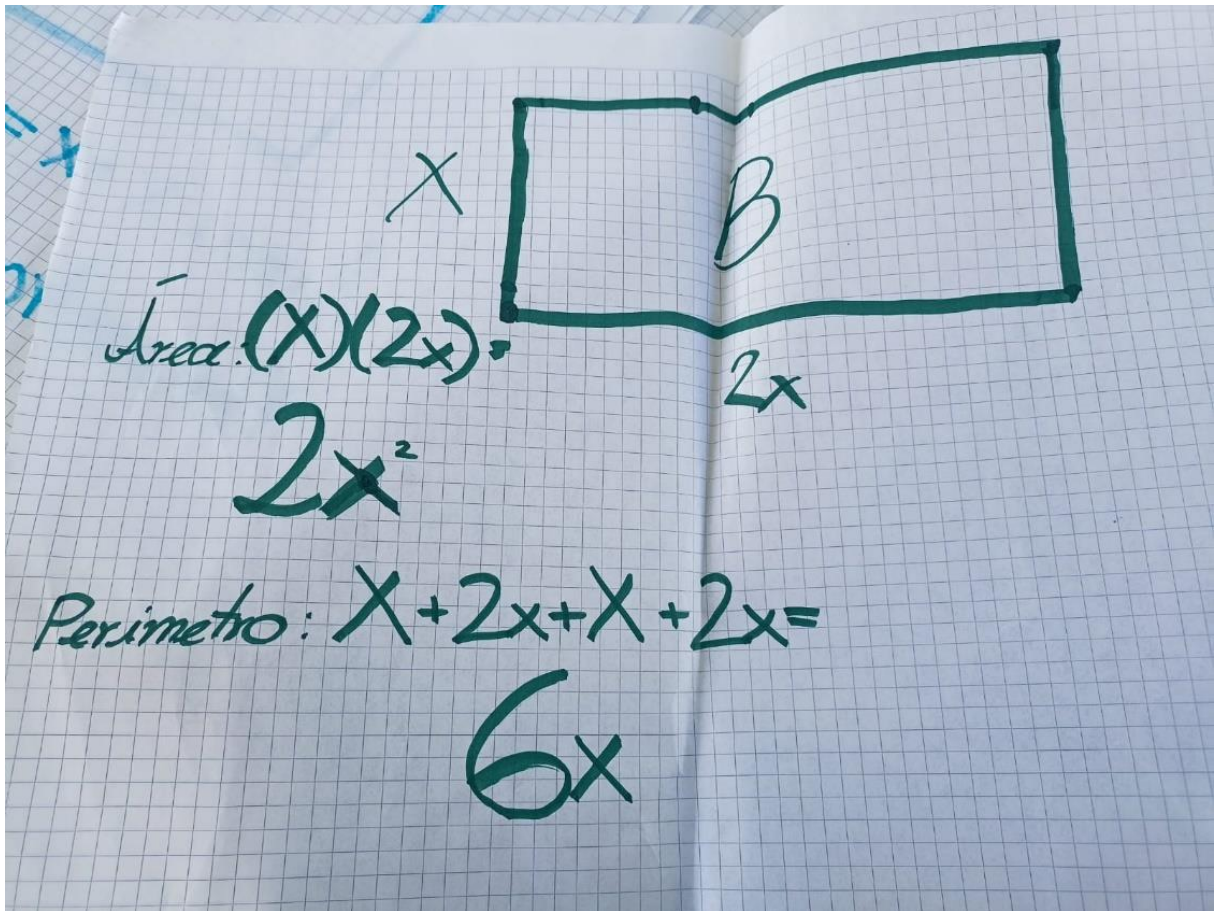 X
B
2x
Área: (X)(2x)=
2x²
Perimetro: X+2x+X+2x=
6x
= x